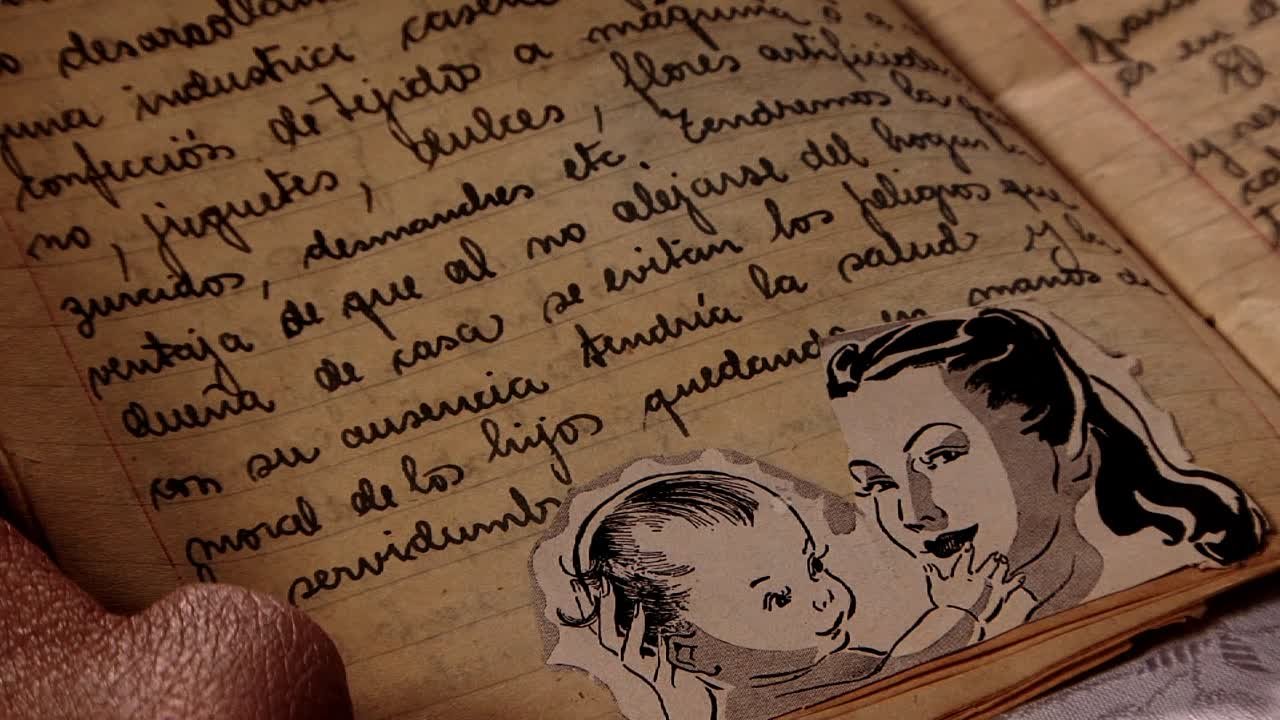 desarrollan
una industria casera
confección de tejidos a máquina ó a
no, juguetes, dulces, flores artificiales
zurcidos, desmandres etc. Tendremos la
ventaja de que al no alejarse del hogar la
dueña de casa se evitan los peligros que
con su ausencia tendría la salud y la
moral de los hijos quedando en manos de
servidumb
es en
y